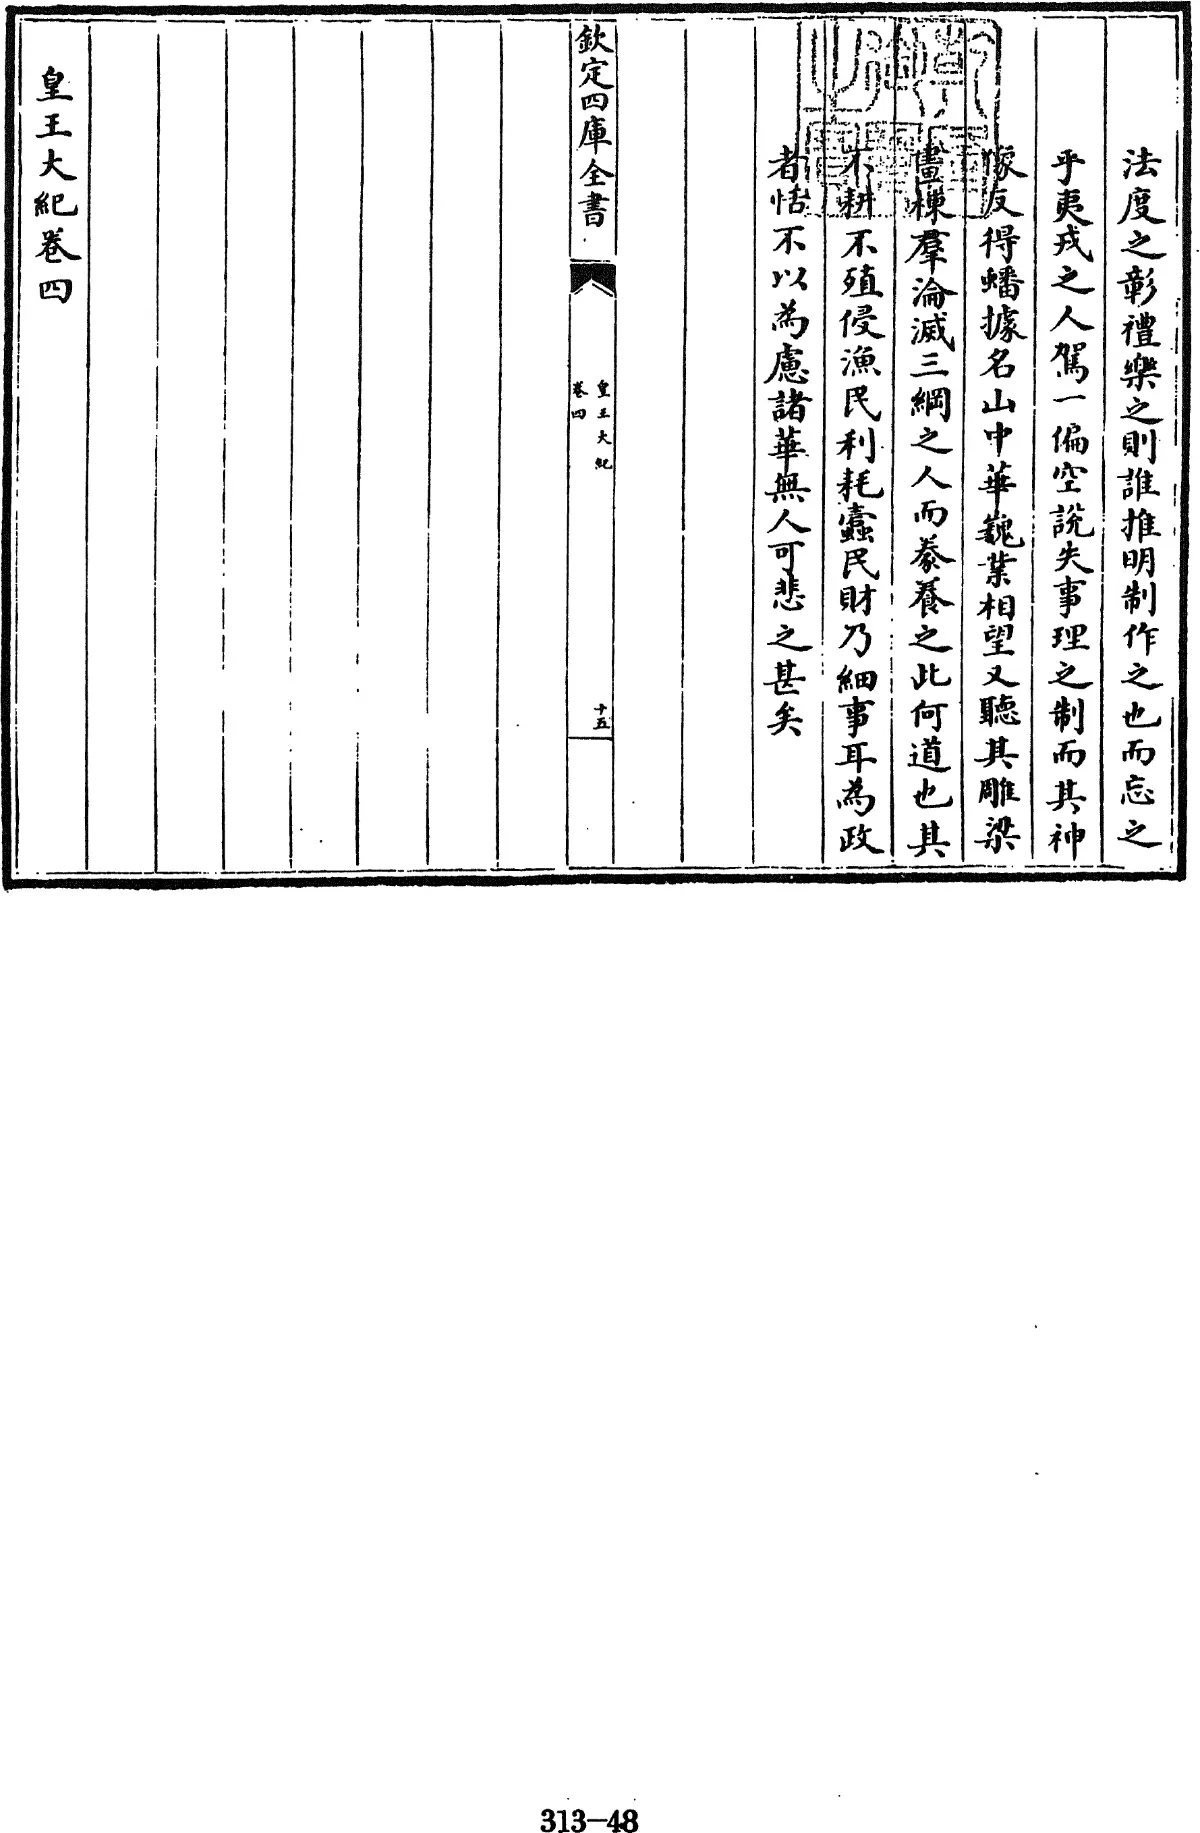 法度之彰禮樂之則誰推明制作之也而忘之
乎夷戎之人駕一偏空說失事理之制而其神
像反得蟠據名山中華巍業相望又聽其雕梁
畫棟羣淪滅三綱之人而豢養之此何道也其
不耕不殖侵漁民利耗蠹民財乃細事耳為政
者恬不以為慮諸華無人可悲之甚矣
欽定四庫全書
皇王大紀
卷四
十五
皇王大紀卷四
313-48